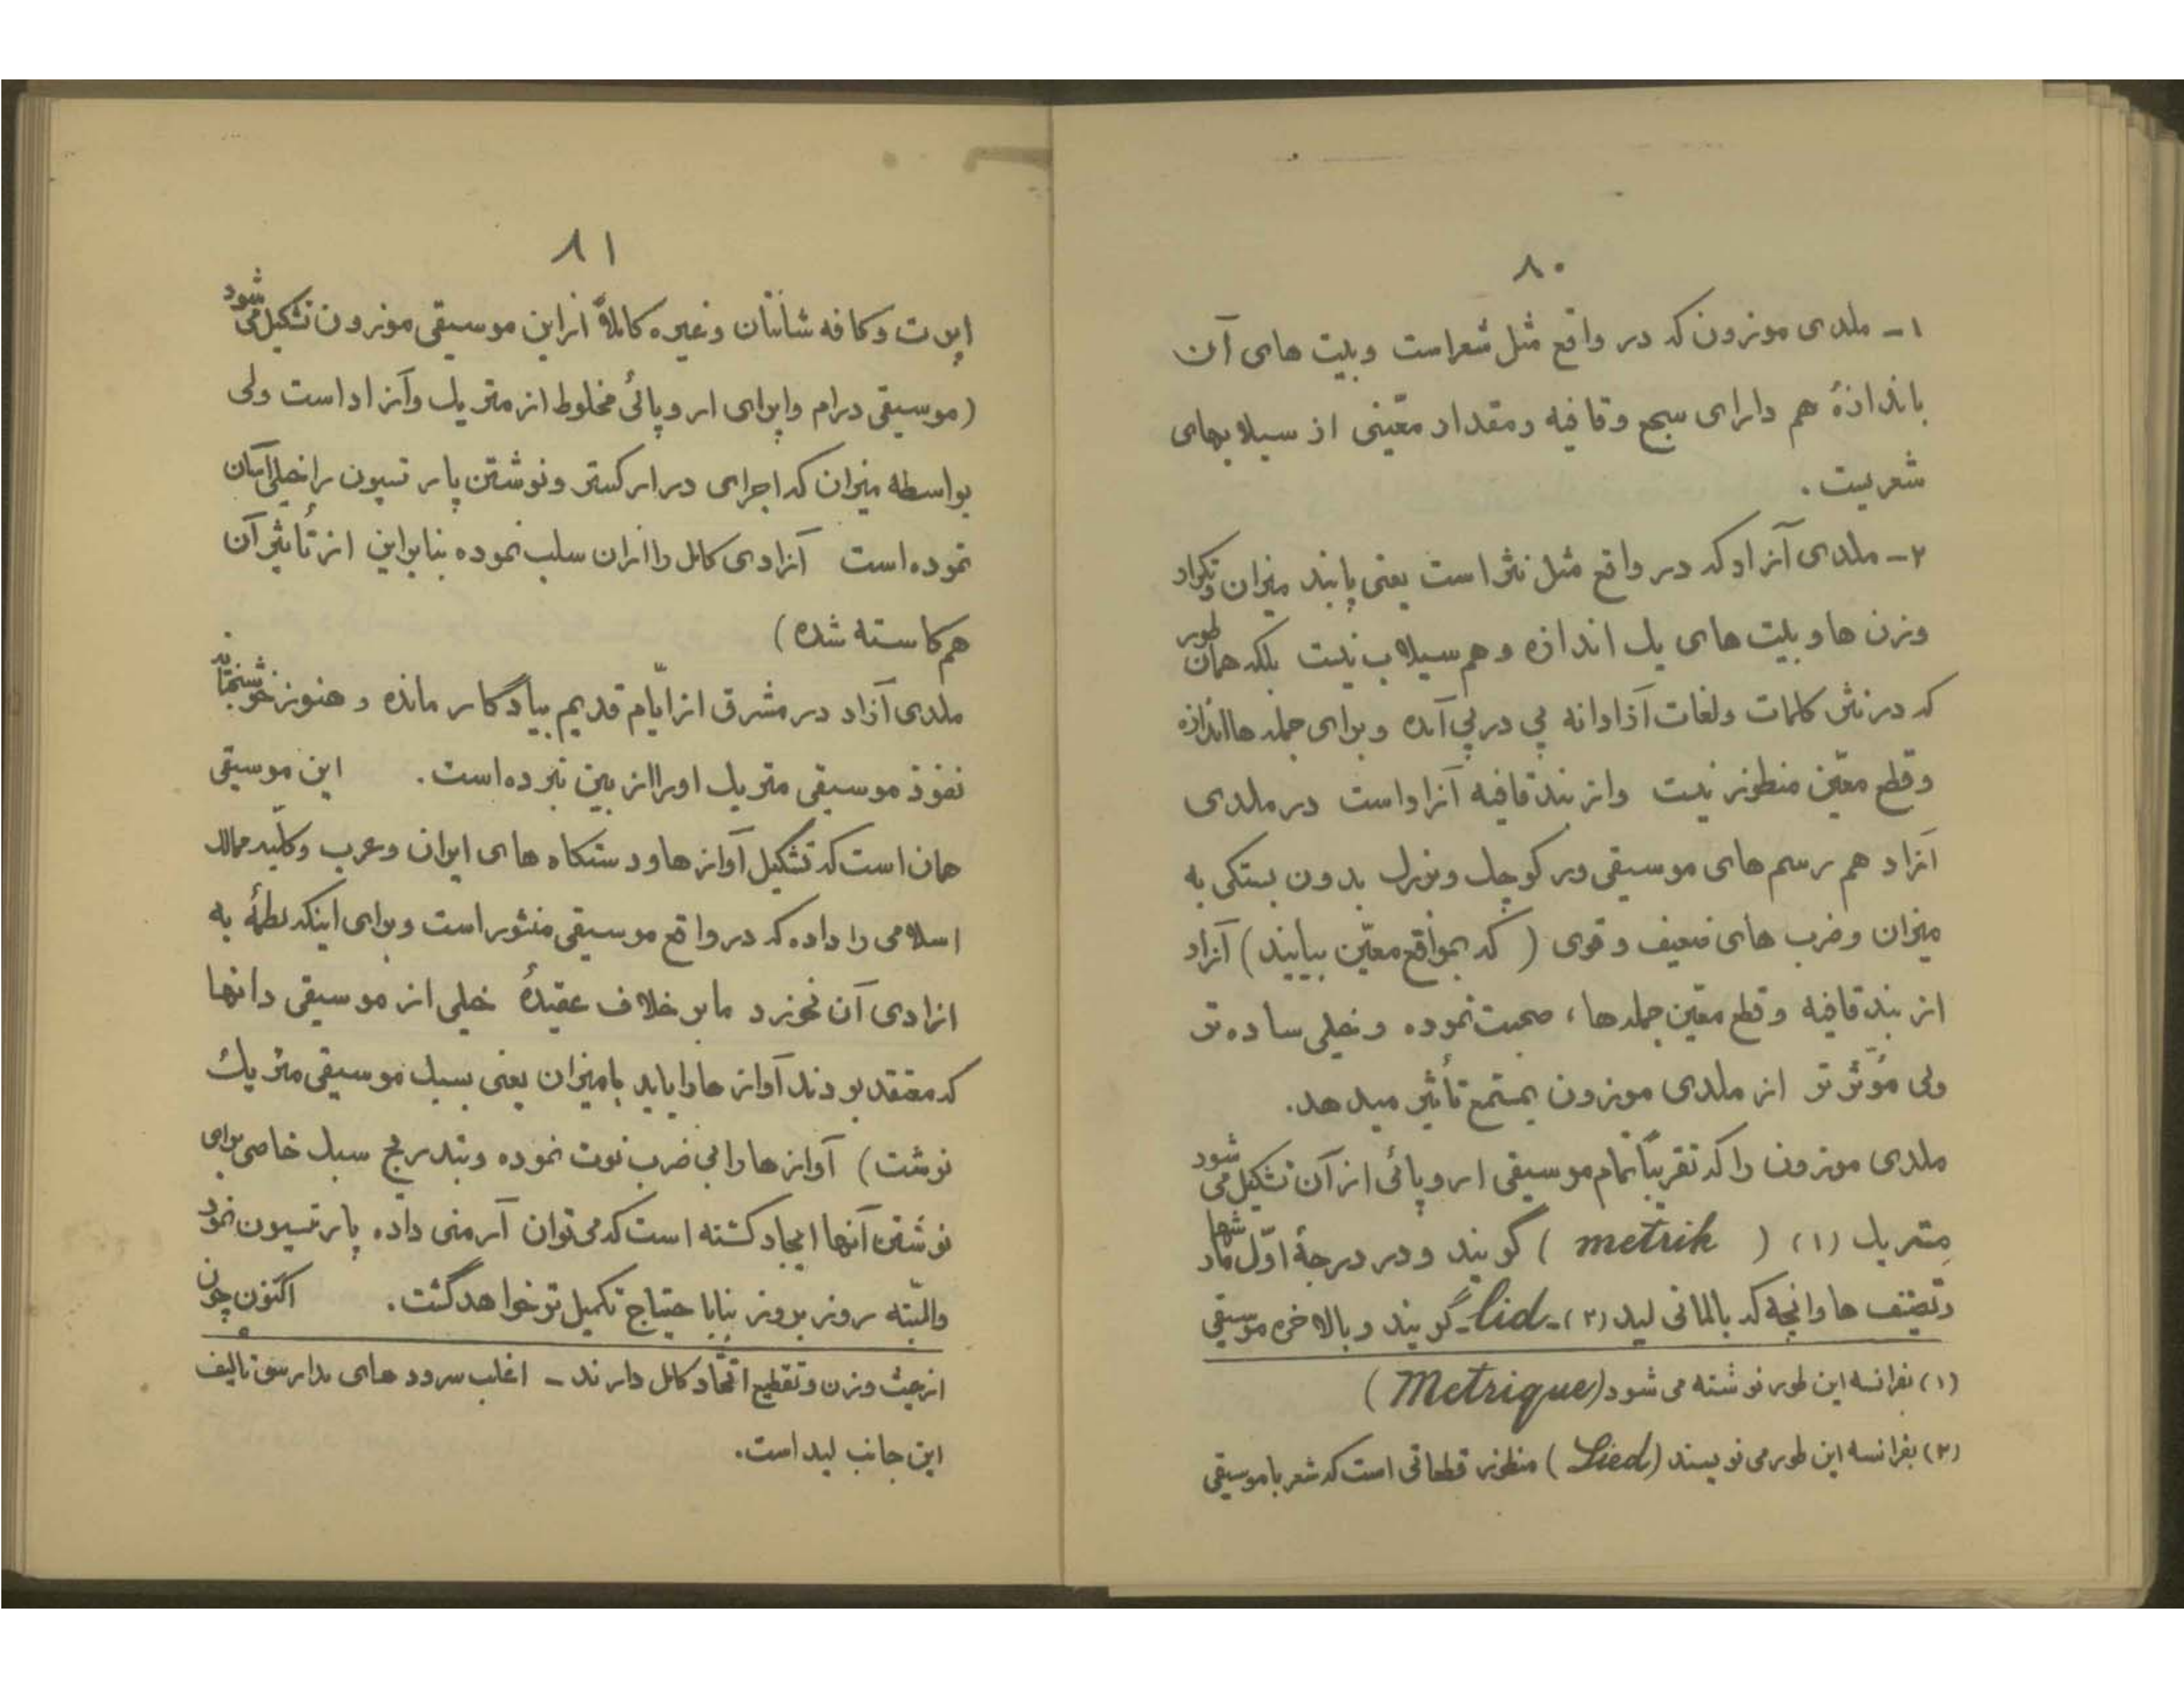 ۸۰
۱ - ملدی موزون که در واقع مثل شعر است و بیت های آن
باندازهٔ هم دارای سجع وقافیه ومقدار معینی از سیلابهای
شعریت .
۲ - ملدی آزاد که در واقع مثل نثر است یعنی پابند میزان وتکرار
وزن ها و بیت های یک اندازه و هم سیلاب نیست بلکه همان طور
که در نثر کلمات ولغات آزادانه پی در پی آمده و برای جمله ها اندازه
وقطع معیّن منظور نیست واز بند قافیه آزاد است در ملدی
آزاد هم رسم های موسیقی ور کوچک وبزرک بدون بستکی به
میزان وضرب های ضعیف و قوی ( که بمواقع معیّن بیایند ) آزاد
از بند قافیه و قطع معیّن جمله ها ، صحبت نموده و خیلی ساده تر
ولی مؤثّر تر از ملدی موزون بمستمع تأثیر میدهد .
ملدی موزون را که تقریباً تمام موسیقی اروپائی از آن تشکیل می شود
مِتریک (۱) ( metrik ) گویند و در درجهٔ اوّل مارشها
وتصنیف ها وانچه که بالمانی لید (۲) - lid - گویند و بالاخره موسیقی
(۱) بفرانسه این طور نوشته می شود (Metrique)
(۲) بفرانسه این طور می نویسند (Lied) منظور قطعاتی است که شعر با موسیقی
۸۱
اپرت و کافه شانتان وغیره کاملاً از این موسیقی موزون تشکیل می شود
(موسیقی درام واپرای اروپائی مخلوط از متریک وآزاد است ولی
بواسطه میزان که اجرای در ارکستر ونوشتن پارتسیون را خیلی آسان
نموده است آزادی کامل را ازان سلب نموده بنابراین از تأثیر آن
هم کاسته شده )
ملدی آزاد در مشرق از ایّام قدیم بیادگار مانده و هنوز خوشبختانه
نفوذ موسیقی متریک اورا از بین نبرده است . این موسیقی
همان است که تشکیل آواز ها ودستگاه های ایران وعرب وکلّیه ممالک
اسلامی را داده که در واقع موسیقی منثور است وبرای اینکه لطمهٔ به
ازادی آن نخورد ما بر خلاف عقیدهٔ خیلی از موسیقی دانها
که معتقد بودند آواز هارا باید بامیزان یعنی بسبک موسیقی متریک
نوشت ) آواز هارا بی ضرب نوت نموده وبتدریج سبک خاصی برای
نوشتن آنها ایجاد کشته است که می توان آرمنی داده پارتسیون نمود
والبتّه روز بروز بنا با حتیاج تکمیل تر خواهد گشت . اکنون چون
از حیث وزن وتقطیع اتّحاد کامل دارند - اغلب سرود های مدارس تالیف
این جانب لید است .